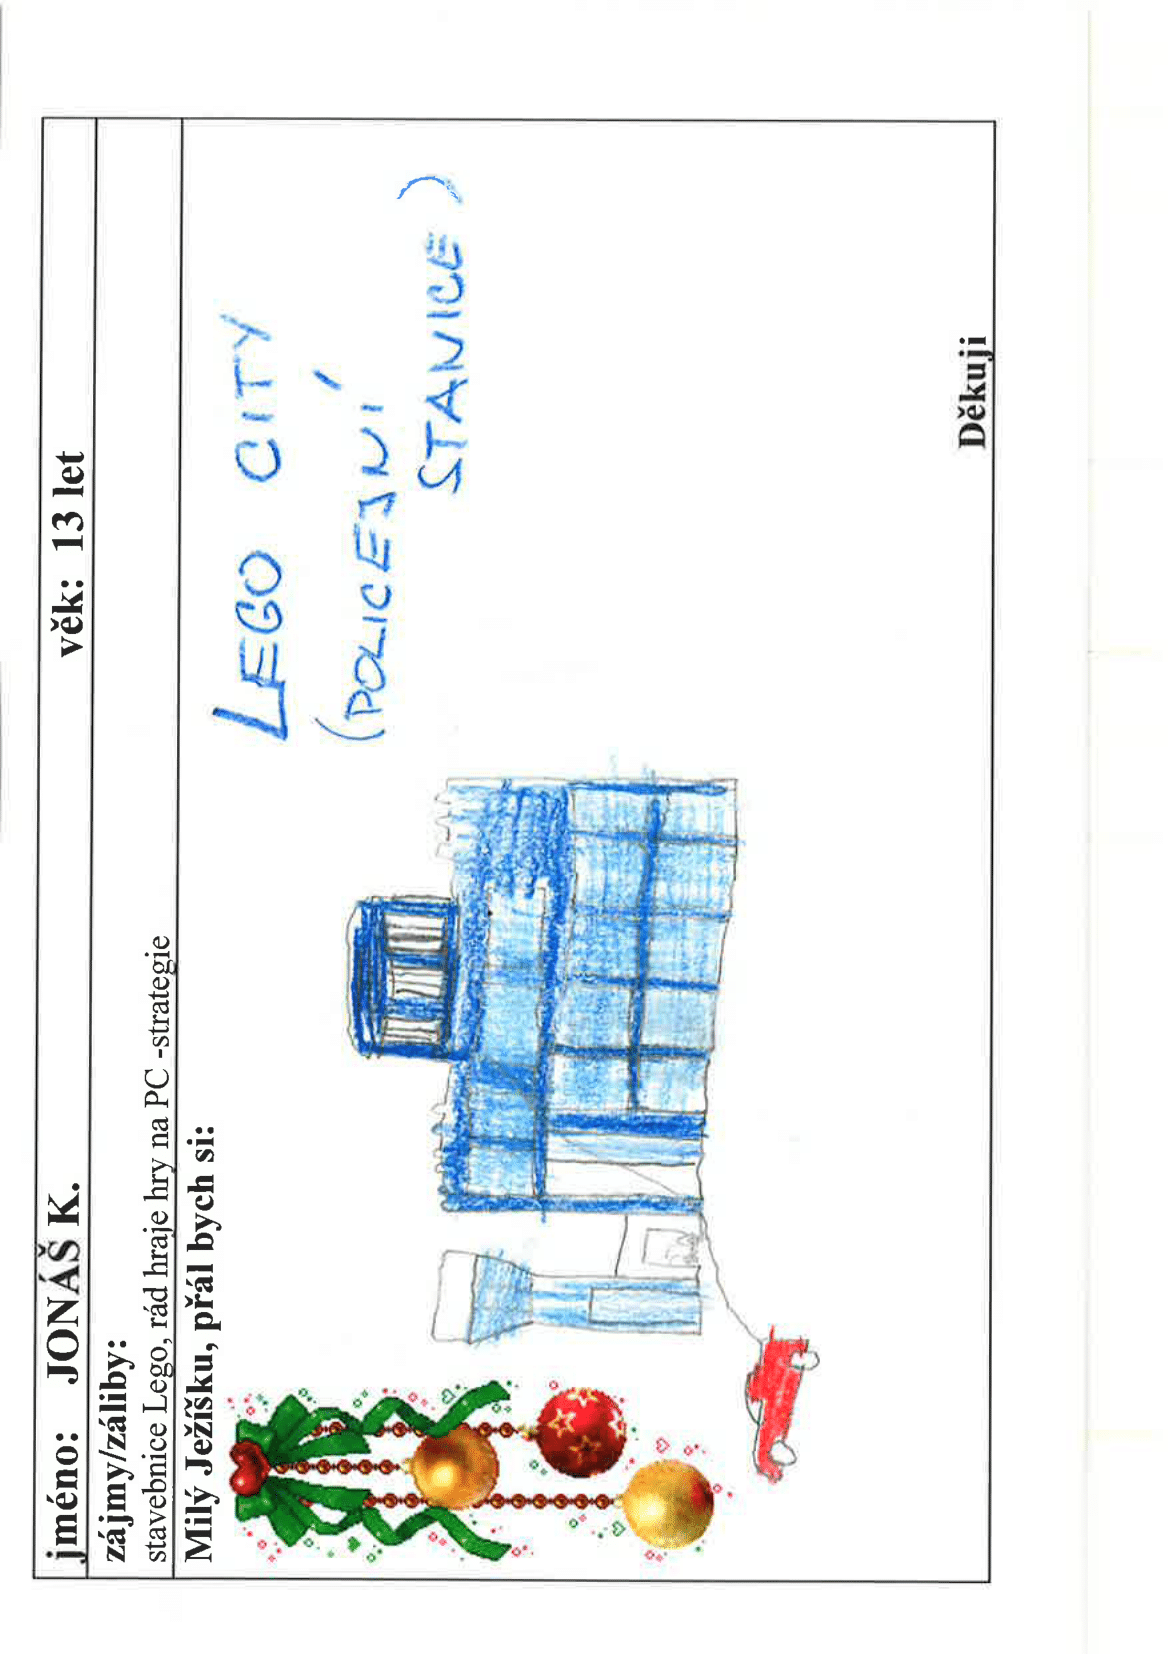 jméno: JONÁŠ K. věk: 13 let
zájmy/záliby:
stavebnice Lego, rád hraje hry na PC -strategie
Milý Ježíšku, přál bych si:
LEGO CITY
(POLICEJNÍ
STANICE)
Děkuji